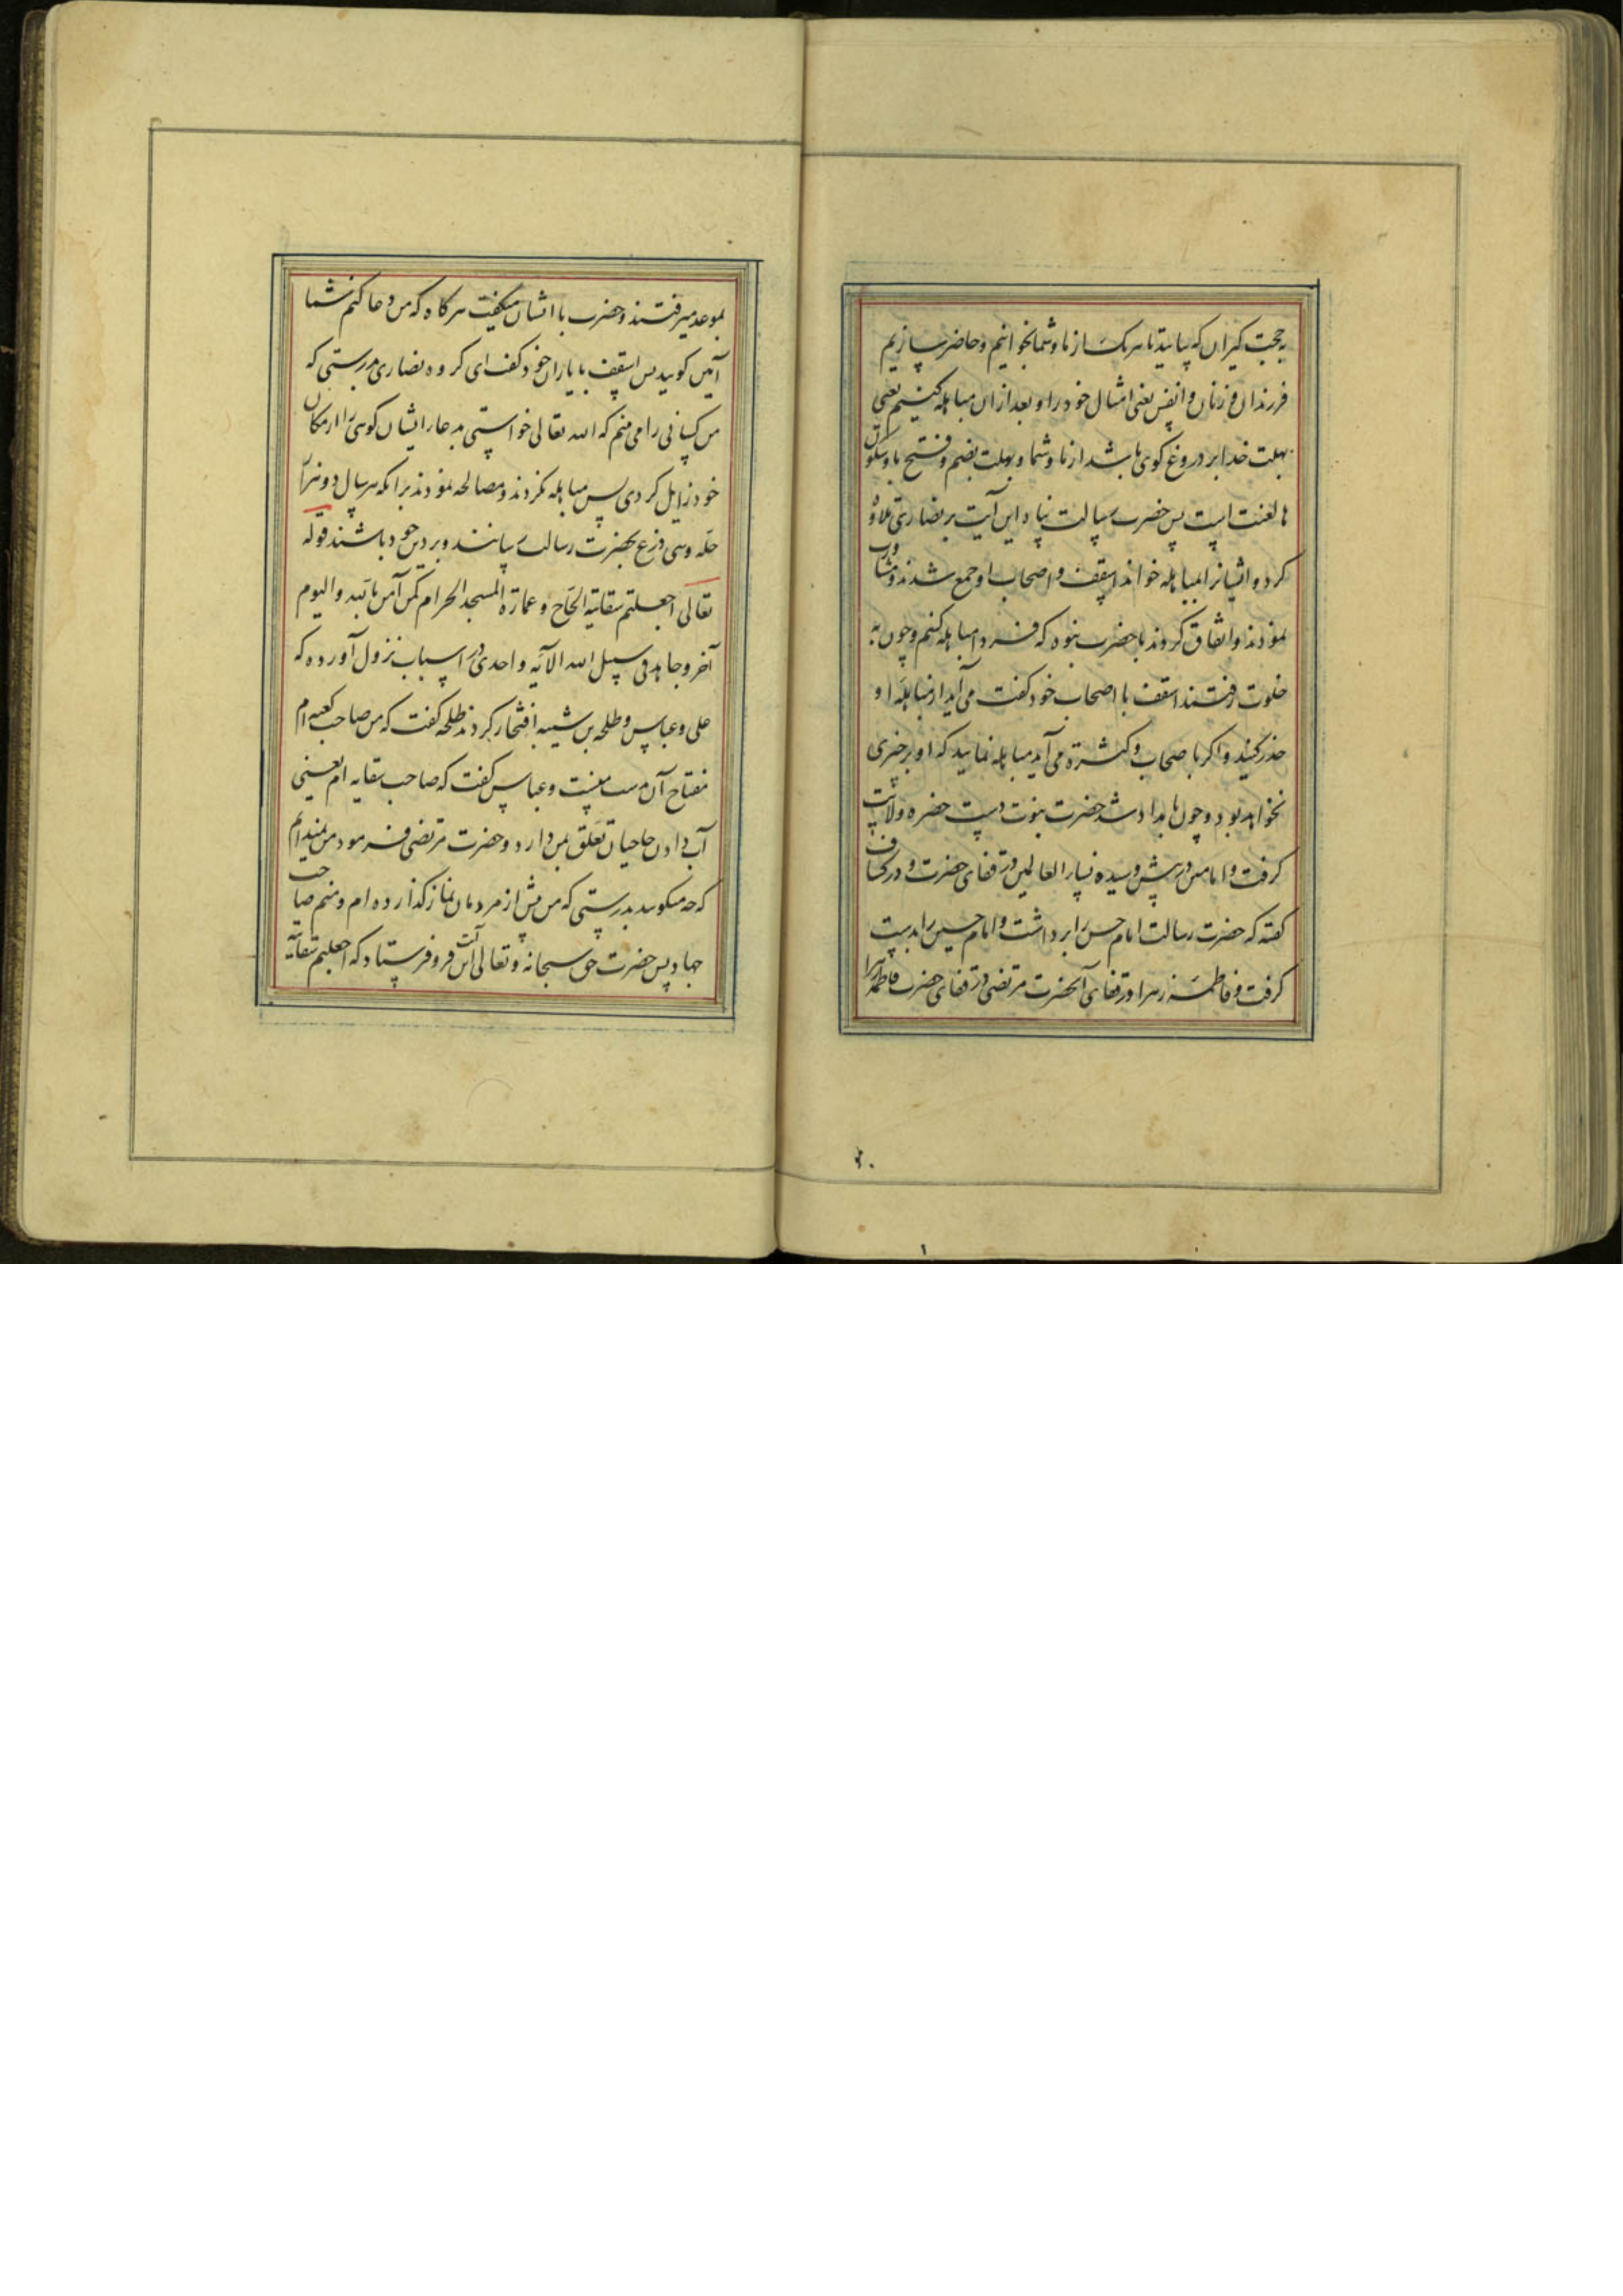 به حجت گیران که بیایید تا هر یک از ما و شما بخوانیم و حاضر سازیم
فرزندان و زنان و انفس یعنی امثال خود را و بعد از ان مباهله کنیم یعنی
بهلت خدا بر دروغ کوی باشد از ما و شما و بهلت بضم و فتح با و سکون
ها لعنت است پس حضرت رسالت پناه این آیت بر نصاری تلاوة
کرد و ایشانرا بمباهله خواند اسقف و اصحاب او جمع شدند و مشاورت
نمودند و اتفاق کردند با حضرت نبوه که فردا مباهله کنیم و چون به
خلوت رفتند اسقف با اصحاب خود کفت می آید از مباهلهٔ او
حذر کنید و اکر با صحاب و کثرة می آید مباهله نمایید که او بر چیزی
نخواهد بود و چون بامداد شد حضرت نبوت دست حضره ولایت
کرفت و امامین در پیش و سیده نساء العالمین در قفای حضرت و در کشاف
کفته که حضرت رسالت امام حسن را برداشت و امام حسین را بدست
کرفت و فاطمه زهرا در قفای آنحضرت مرتضی در قفای حضرت فاطمه زهرا
۲۰
۱
بموعد میرفتند و حضرت با ایشان میکفت هرکاه که من دعا کنم شما
آمین کویید پس اسقف با یاران خود کفت ای کروه نصاری بدرستی که
من کسانی را می بینم که الله تعالی خواستی بدعاء ایشان کوهی را از مکان
خود زایل کردی پس مباهله نکردند و مصالحه نمودند برانکه هر سال دو هزار
حله و سی درع بحضرت رسالت رسانند و بر دین خود باشند قوله
تعالی اجعلتم سقایة الحاج و عمارة المسجد الحرام کمن آمن بالله و الیوم
آخر و جاهد فی سبیل الله الآیه واحدی در اسباب نزول آورده که
علی و عباس و طلحه بن شیبه افتخار کردند طلحه کفت که من صاحب کعبه ام
مفتاح آن بدست منست و عباس کفت که صاحب سقایه ام یعنی
آب دادن حاجیان تعلق بمن دارد و حضرت مرتضی فرمود من نمیدانم
که چه میکویید بدرستی که من پیش از مردمان نماز کذارده ام و منم صاحب
جهاد پس حضرت حق سبحانه و تعالی این آیت فرو فرستاد که اجعلتم سقایة